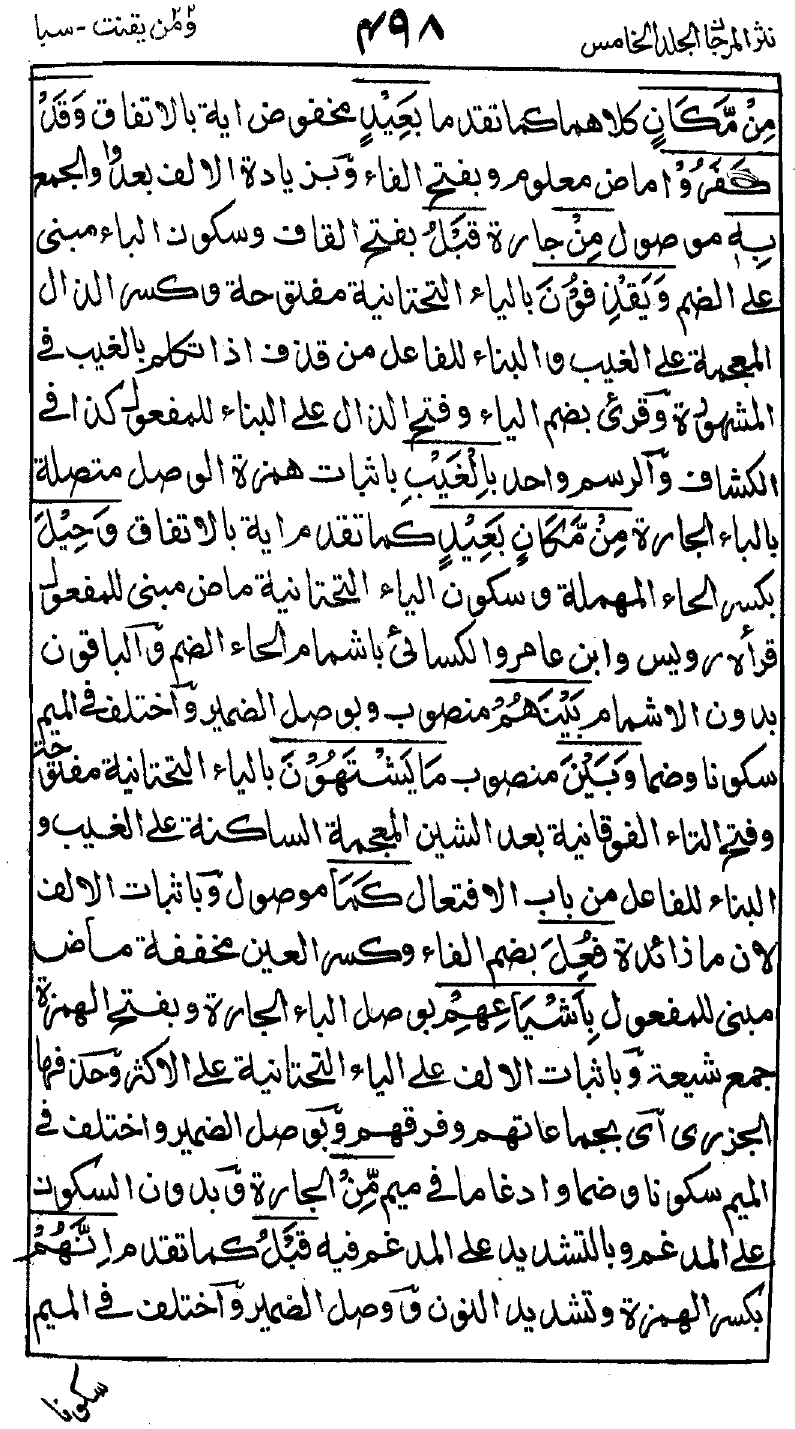 نثر المرجان الجلد الخامس ۴۹۸ ومن يقنت ۲۲ - سبا
مِنْ مَّكَانٍ كلاهما كما تقدما بَعِيْدٍ مخفوض اية بالاتفاق وَقَدْ
كَفَرُوْا ماض معلوم وبفتح الفاء وبزيادة الالف بعد واو الجمع
بِهٖ موصول مِنْ جارة قَبْلُ بفتح القاف وسكون الباء مبنى
على الضم وَيَقْذِفُوْنَ بالياء التحتانية مفتوحة وكسر الذال
المعجمة على الغيب والبناء للفاعل من قذف اذا تكلم بالغيب فى
المشهورة وقرئ بضم الياء وفتح الذال على البناء للمفعول كذا فى
الكشاف والرسم واحد بِالْغَيْبِ باثبات همزة الوصل متصلة
بالباء الجارة مِنْ مَّكَانٍ بَعِيْدٍ كما تقدم اية بالاتفاق وَحِيْلَ
بكسر الحاء المهملة وسكون الياء التحتانية ماض مبنى للمفعول
قرأه رويس وابن عامر والكسائى باشمام الحاء الضم والباقون
بدون الاشمام بَيْنَهُمْ منصوب وبوصل الضمير واختلف فى الميم
سكونا وضما وَبَيْنَ منصوب مَا يَشْتَهُوْنَ بالياء التحتانية مفتوحة
وفتح التاء الفوقانية بعد الشين المعجمة الساكنة على الغيب و
البناء للفاعل من باب الافتعال كَمَا موصول وباثبات الالف
لان ما زائدة فُعِلَ بضم الفاء وكسر العين مخففة ماض
مبنى للمفعول بِاَشْيَاعِهِمْ بوصل الباء الجارة وبفتح الهمزة
جمع شيعة وباثبات الالف على الياء التحتانية على الاكثر وحذفها
الجزرى اى بجماعاتهم وفرقهم وبوصل الضمير واختلف فى
الميم سكونا وضما وادغاما فى ميم مِّنْ الجارة وبدون السكون
على المدغم وبالتشديد على المدغم فيه قَبْلُ كما تقدم اِنَّهُمْ
بكسر الهمزة وتشديد النون ووصل الضمير واختلف فى الميم
سكونا